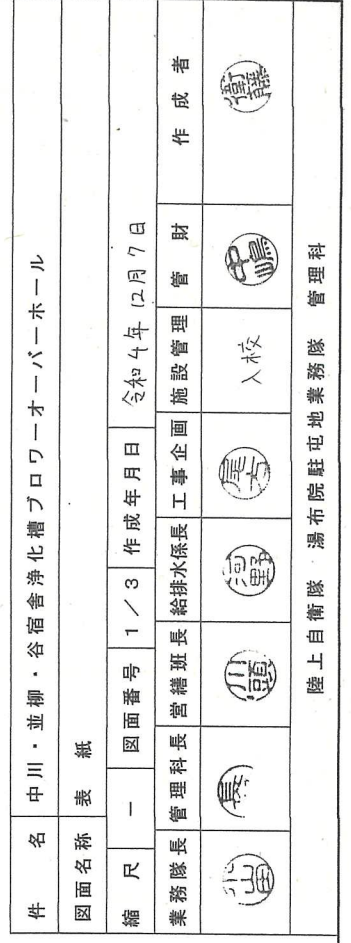 件 名 中川・並柳・谷宿舎浄化槽ブロワーオーバーホール
図面名称 表 紙
縮 尺 ー 図面番号 1/3 作成年月日 令和4年12月7日
業務隊長 管理科長 営繕班長 給排水係長 工事企画 施設管理 管 財 作 成 者
川頭 河野 尾方 入校 中嶋 衛藤
陸上自衛隊 湯布院駐屯地業務隊 管理科